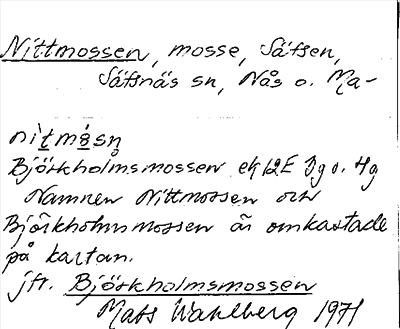 Nittmossen, mosse, Säfsen,
Säfsnäs sn, Nås o. Ma-
nìtmåsn
Björkholmsmossen ek 12E 3g o. 4g
Namnen Nittmossen och
Björkholmsmossen är omkastade
på kartan.
jfr. Björkholmsmossen
Mats Wahlberg 1971